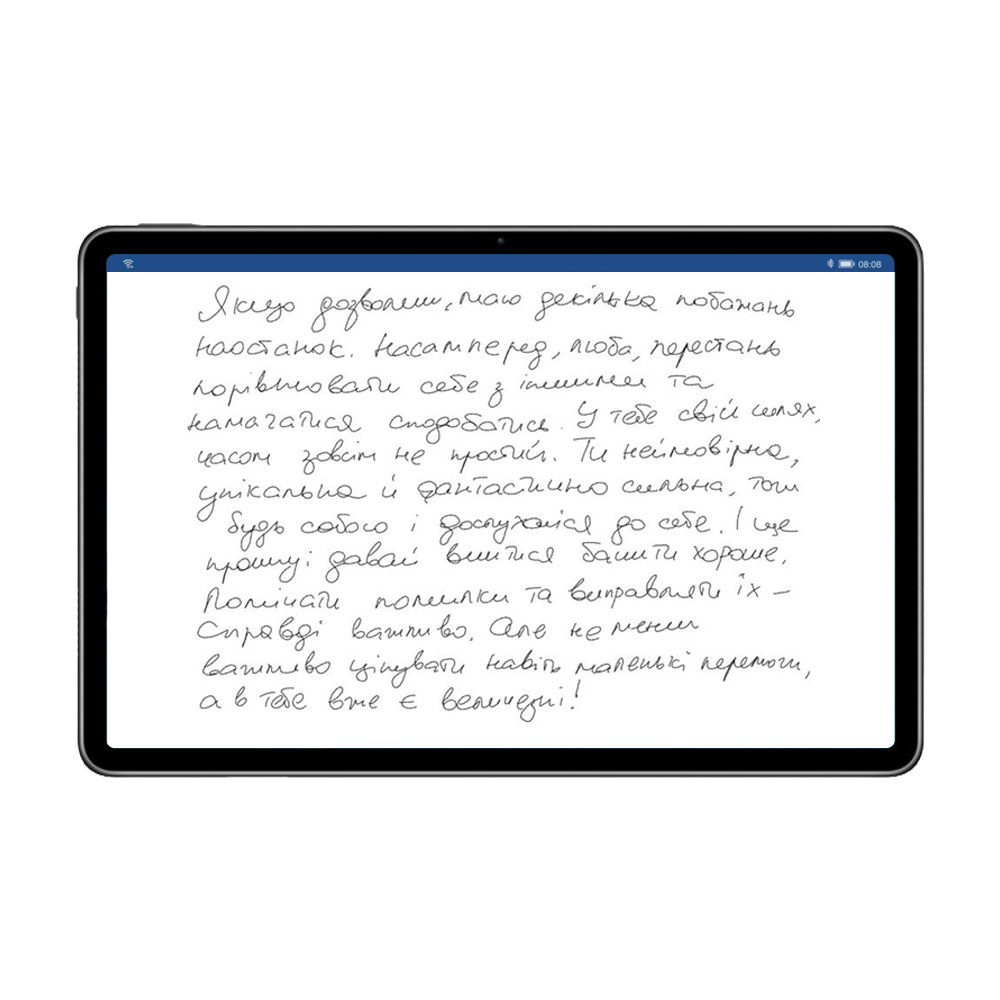 08:08
Якщо дозволиш, маю декілька побажань
наостанок. Насамперед, люба, перестань
порівнювати себе з іншими та
намагатися сподобатись. У тебе свій шлях,
часом зовсім не простий. Ти неймовірна,
унікальна й фантастично сильна, тож
будь собою і дослухайся до себе. І ще
прошу: давай вчитися бачити хороше.
Помічати помилки та виправляти їх –
справді важливо. Але не менш
важливо цінувати навіть маленькі перемоги,
а в тебе вже є величезні!